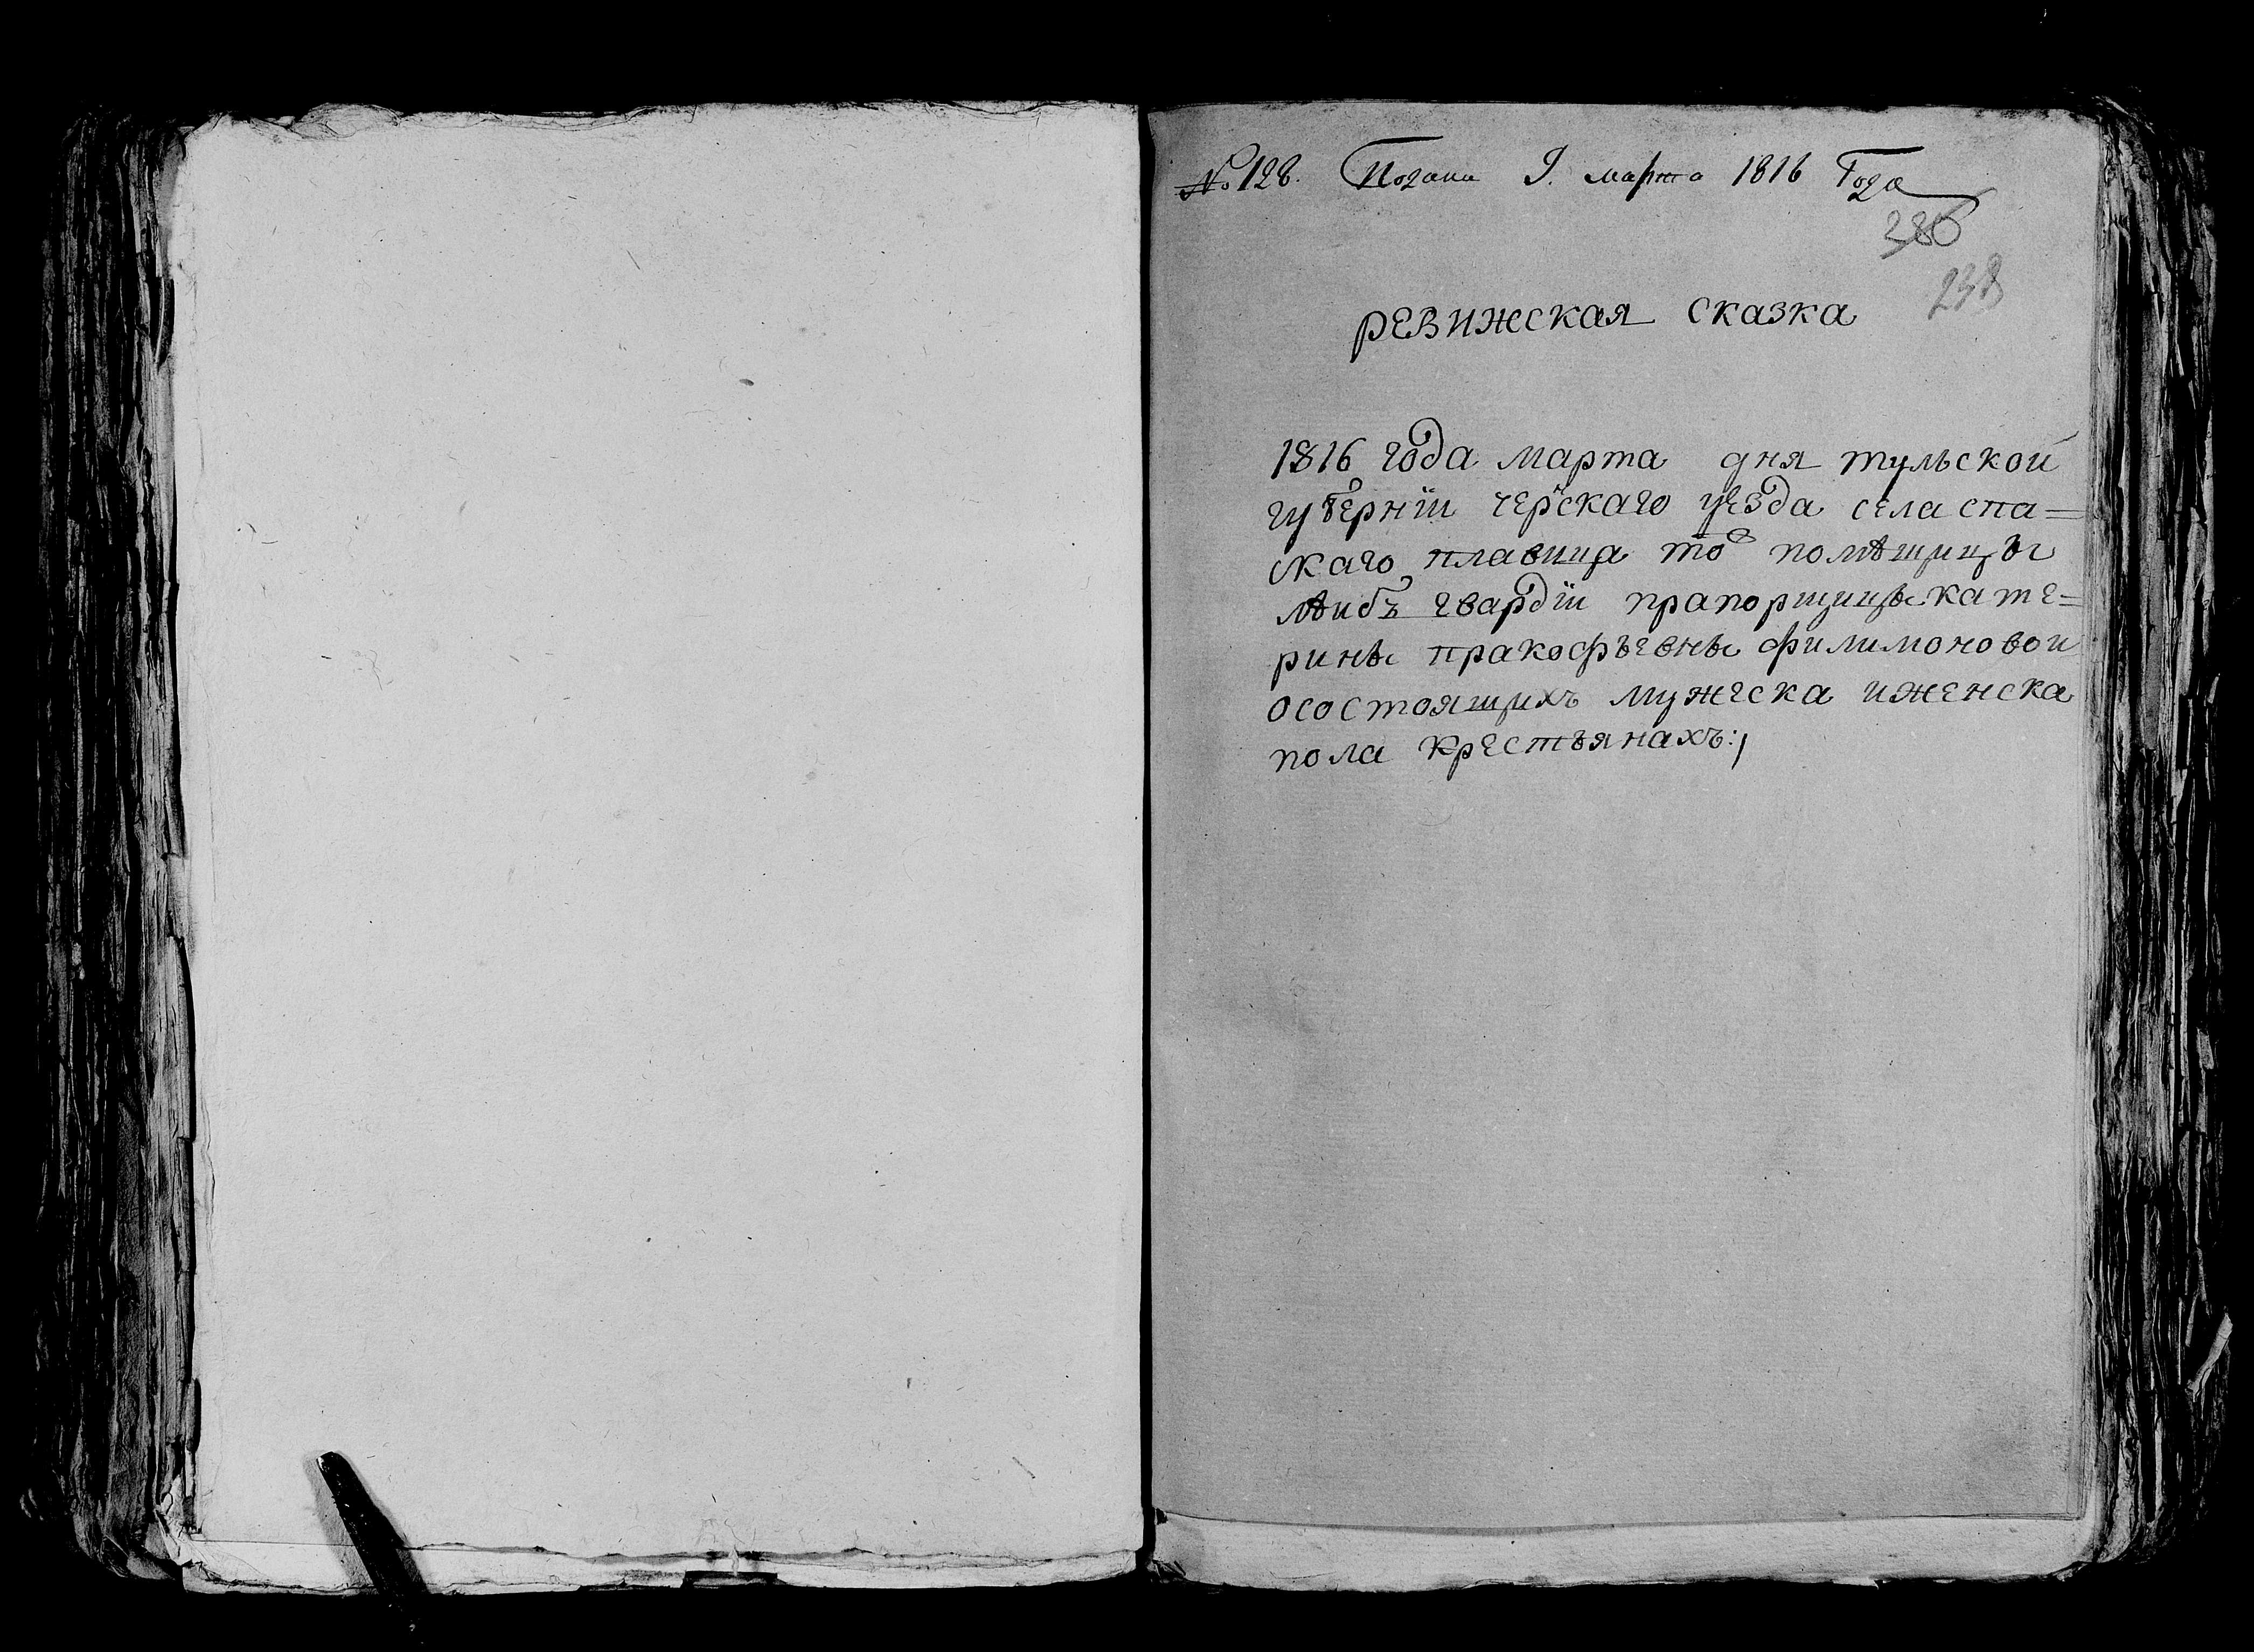 № 128. Подана 9. марта 1816 Года
238
ревижская сказка
1816 года марта дня тульской
губернїи черскаго уезда села спа=
скаго плавица то помѣщицы
лѣибъ гвардїи прапорщицы кате=
рины пракофъевны филимоновой
осостоящихъ мужеска иженска
пола крестьянахъ: